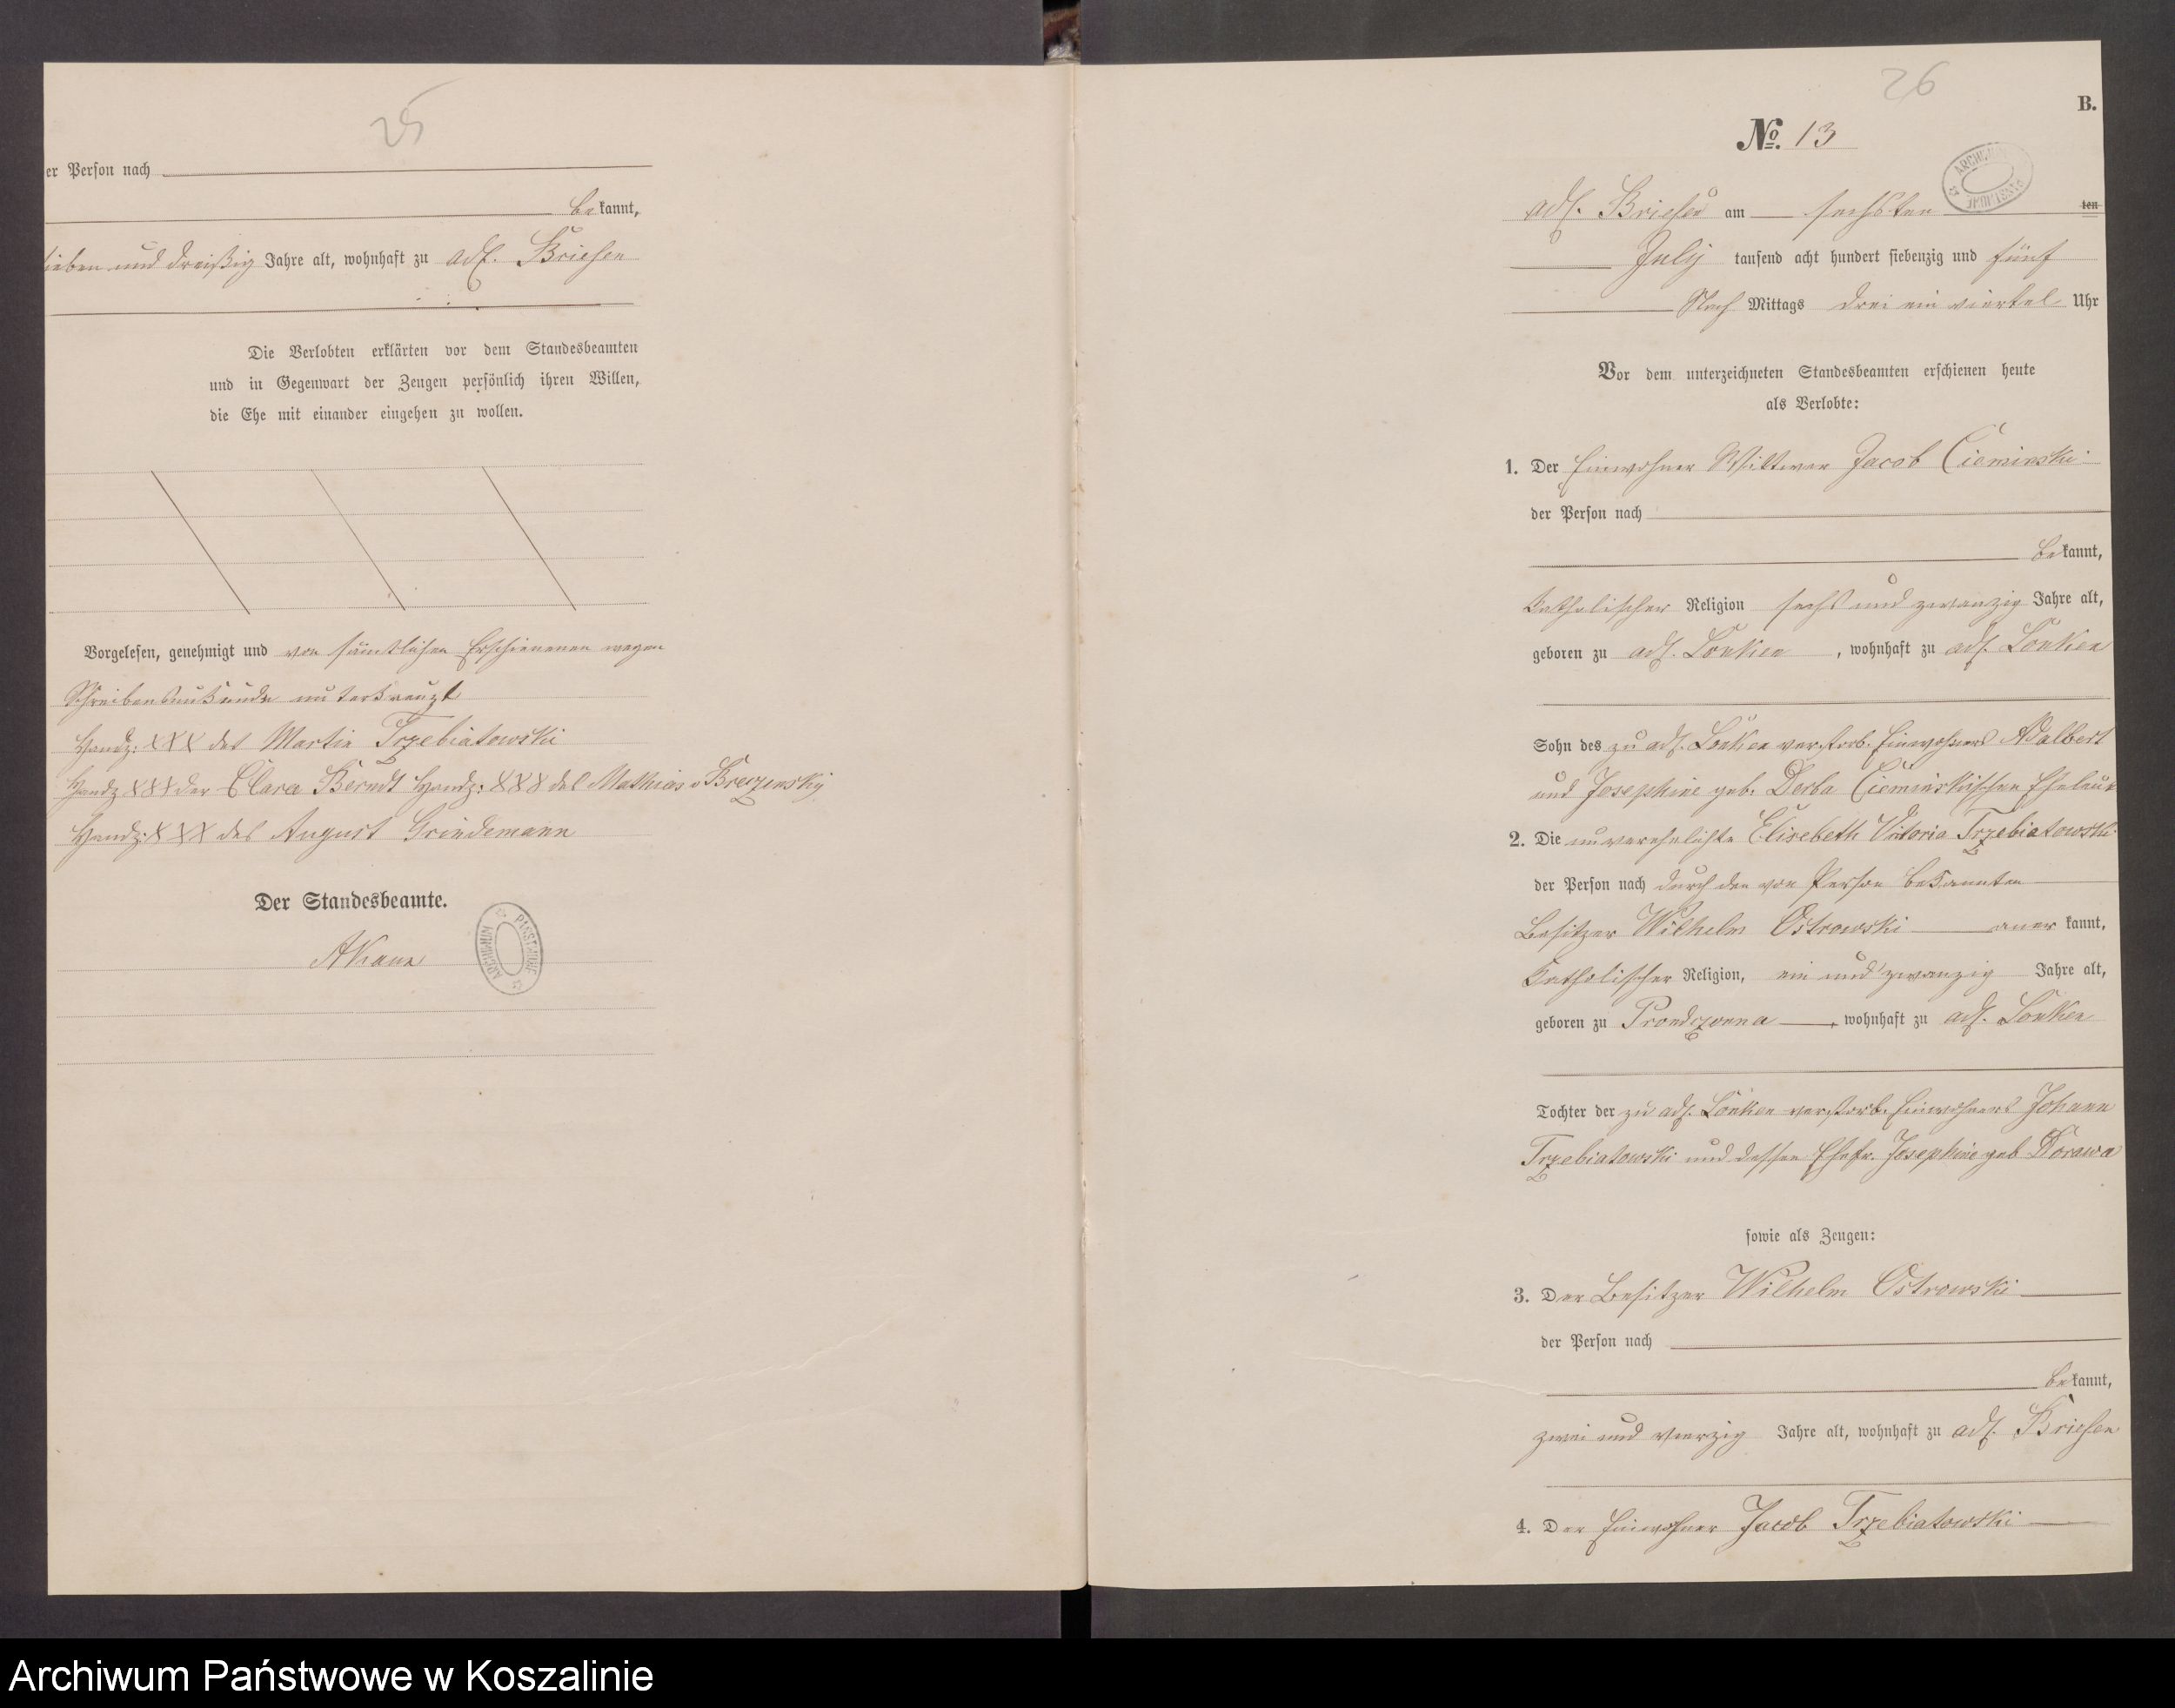 25
er Person nach
bekannt,
sieben und dreißig Jahre alt, wohnhaft zu adl. Briesen
Die Verlobten erklärten vor dem Standesbeamten
und in Gegenwart der Zeugen persönlich ihren Willen,
die Ehe mit einander eingehen zu wollen.
Vorgelesen, genehmigt und von sämtlichen Erschienenen wegen
Schreibensunkunde unterkreuzt
Handz: XXX des Martin Trzebiatowski
Handz XXX der Clara Berndt Handz: XXX des Mathias v Brezensky
Handz: XXX des August Grindemann
Der Standesbeamte.
AKann
ARCHIWUM PAŃSTWOWE
26
B.
No. 13
ARCHIWUM PAŃSTWOWE
adl. Briesen am sechsten ten
July tausend acht hundert siebenzig und fünf
Nach Mittags drei ein viertel Uhr
Vor dem unterzeichneten Standesbeamten erschienen heute
als Verlobte:
1. Der Einwohner Wittwer Jacob Cieminski
der Person nach
bekannt,
katholischer Religion sechs und zwanzig Jahre alt,
geboren zu adl. Lonken, wohnhaft zu adl. Lonken
Sohn des zu adl. Lonken verstorb. Einwohners Adalbert
und Josephine geb. Derba Cieminskischen Eheleute
2. Die unverehelichte Elisebeth Victoria Trzebiatowski
der Person nach durch den von Person bekannten
Besitzer Wilhelm Ostrowski anerkannt,
katholischer Religion, ein und zwanzig Jahre alt,
geboren zu Prondzonna, wohnhaft zu adl. Lonken
Tochter der zu adl. Lonken verstorb. Einwohners Johann
Trzebiatowski und dessen Ehefr. Josephine geb Dorawa
sowie als Zeugen:
3. Der Besitzer Wilhelm Ostrowski
der Person nach
bekannt,
zwei und vierzig Jahre alt, wohnhaft zu adl. Briesen
4. Der Einwohner Jacob Trzebiatowski
Archiwum Państwowe w Koszalinie